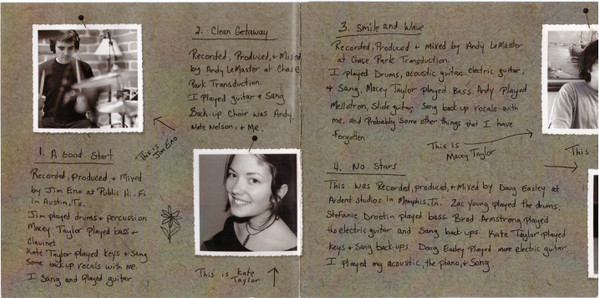 1. A Good Start
Recorded, Produced, + Mixed
by Jim Eno at Public Hi-Fi
in Austin, Tx.
Jim played drums + percussion
Macey Taylor played bass +
Clavinet
Kate Taylor played keys + sang
Some back up vocals with me.
I Sang and played guitar
This is Jim Eno
2. Clean Getaway
Recorded, Produced, + Mixed
by Andy LeMaster at Chase
Park Transduction.
I played guitar + Sang.
Back-up Choir was Andy,
Nate Nelson, + Me.
This is Kate
Taylor
3. Smile and Wave
Recorded, Produced + Mixed by Andy LeMaster
at Chase Park Transduction.
I played Drums, acoustic guitar, electric guitar,
+ Sang. Macey Taylor played Bass. Andy Played
Mellotron, Slide guitar, Sang back up vocals with
me, and Probably Some other things that I have
forgotten.
This is
Macey Taylor
This
4. No Stars
This was Recorded, produced, + Mixed by Doug Easley at
Ardent studios in Memphis, Tn. Zac Young played the drums.
Stefanie Drootin played bass. Brad Armstrong played
the electric guitar and Sang back ups. Kate Taylor played
Keys + Sang back-ups. Doug Easley Played more electric guitar.
I played my acoustic, the piano, + Sang.